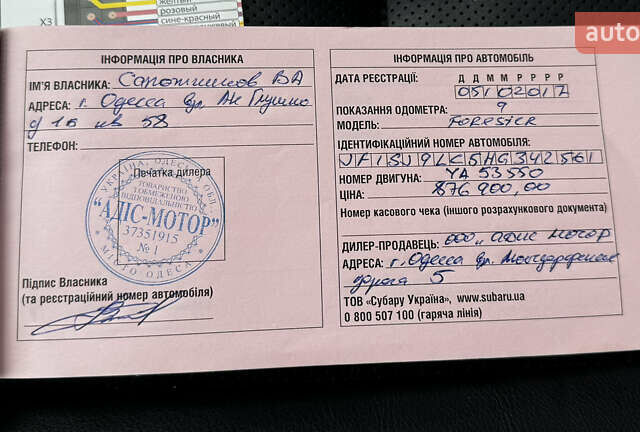 желтый
розовый
сине-красный
X3
auto
ІНФОРМАЦІЯ ПРО ВЛАСНИКА
ІМ'Я ВЛАСНИКА: Сапожников ВА
АДРЕСА: г. Одесса ул. Ак Глушко
д 1б кв 58
ТЕЛЕФОН:
Печатка дилера
УКРАЇНА, ОДЕСЬКА ОБЛ.
ТОВАРИСТВО
З ОБМЕЖЕНОЮ
ВІДПОВІДАЛЬНІСТЮ
"АДІС-МОТОР"
37351915
№ 1
МІСТО ОДЕСА
Підпис Власника
(та реєстраційний номер автомобіля)
ІНФОРМАЦІЯ ПРО АВТОМОБІЛЬ
ДАТА РЕЄСТРАЦІЇ: Д Д М М Р Р Р Р
05102017
ПОКАЗАННЯ ОДОМЕТРА: 9
МОДЕЛЬ: FORESTER
ІДЕНТИФІКАЦІЙНИЙ НОМЕР АВТОМОБІЛЯ:
JF1SJ9LC5HG342561
НОМЕР ДВИГУНА: YA 53550
ЦІНА: 876 900,00
Номер касового чека (іншого розрахункового документа)
ДИЛЕР-ПРОДАВЕЦЬ: ООО „Адис Мотор
АДРЕСА: г. Одесса ул.
дорога 5
ТОВ "Субару Україна", www.subaru.ua
0 800 507 100 (гаряча лінія)